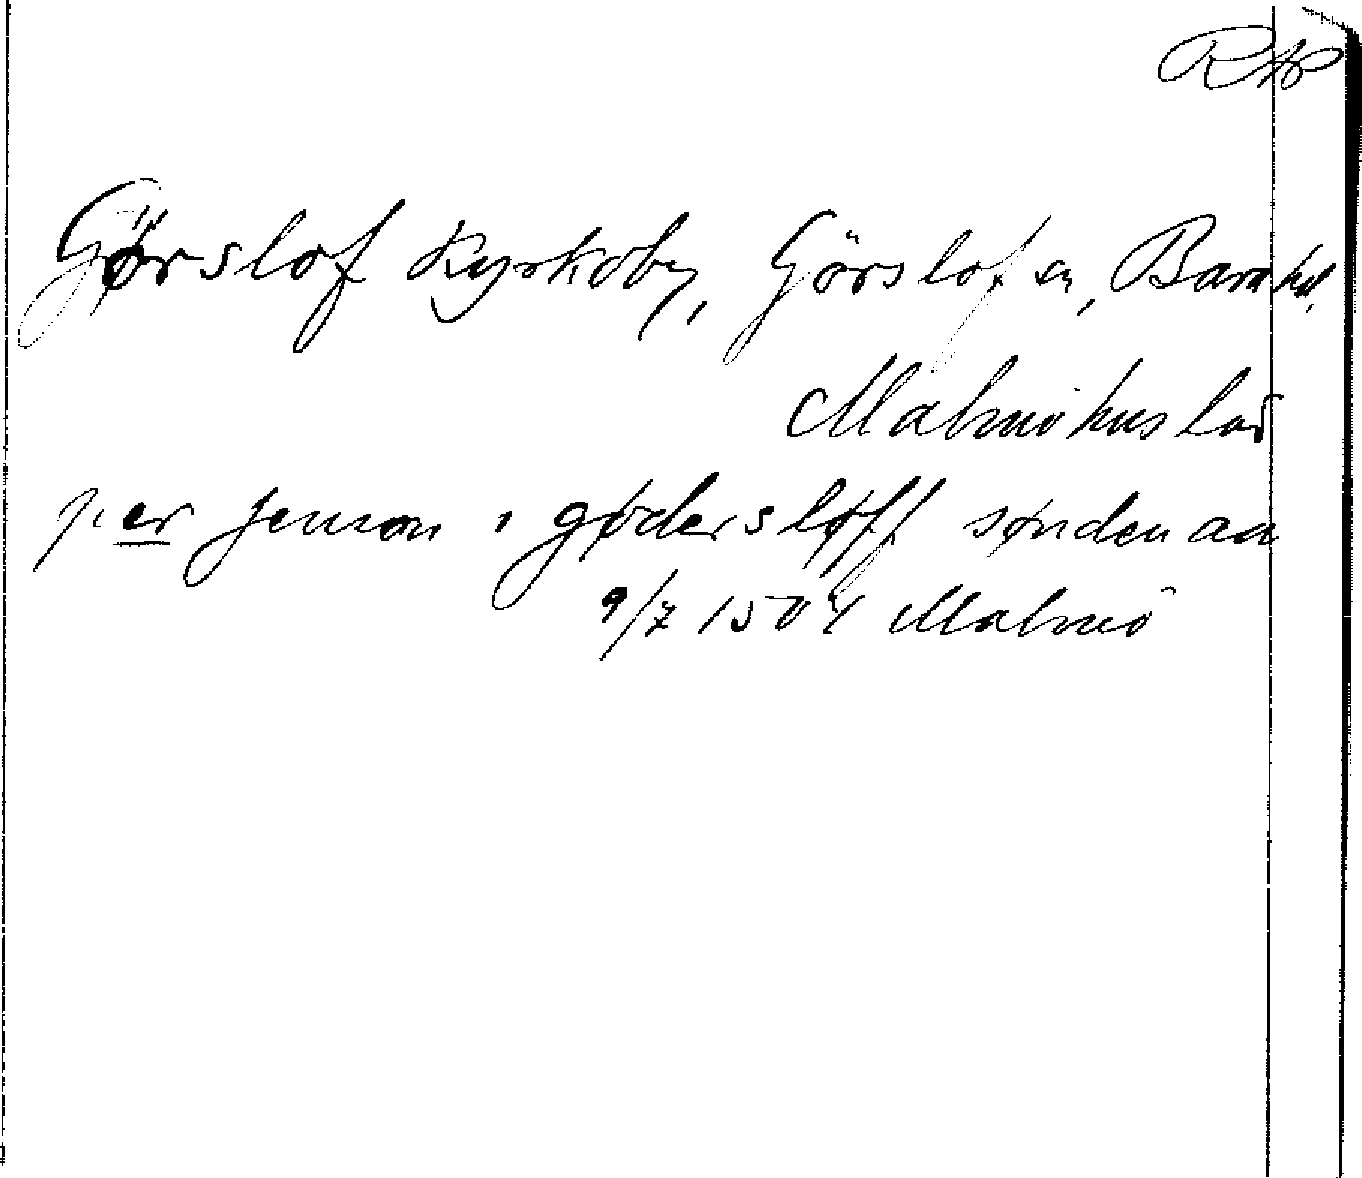 Görslöf Kyrkoby, Görslöf sn, Bara hd,
Malmöhus län
per jenson i gødersløff sønden aa
9/7 1504 Malmö